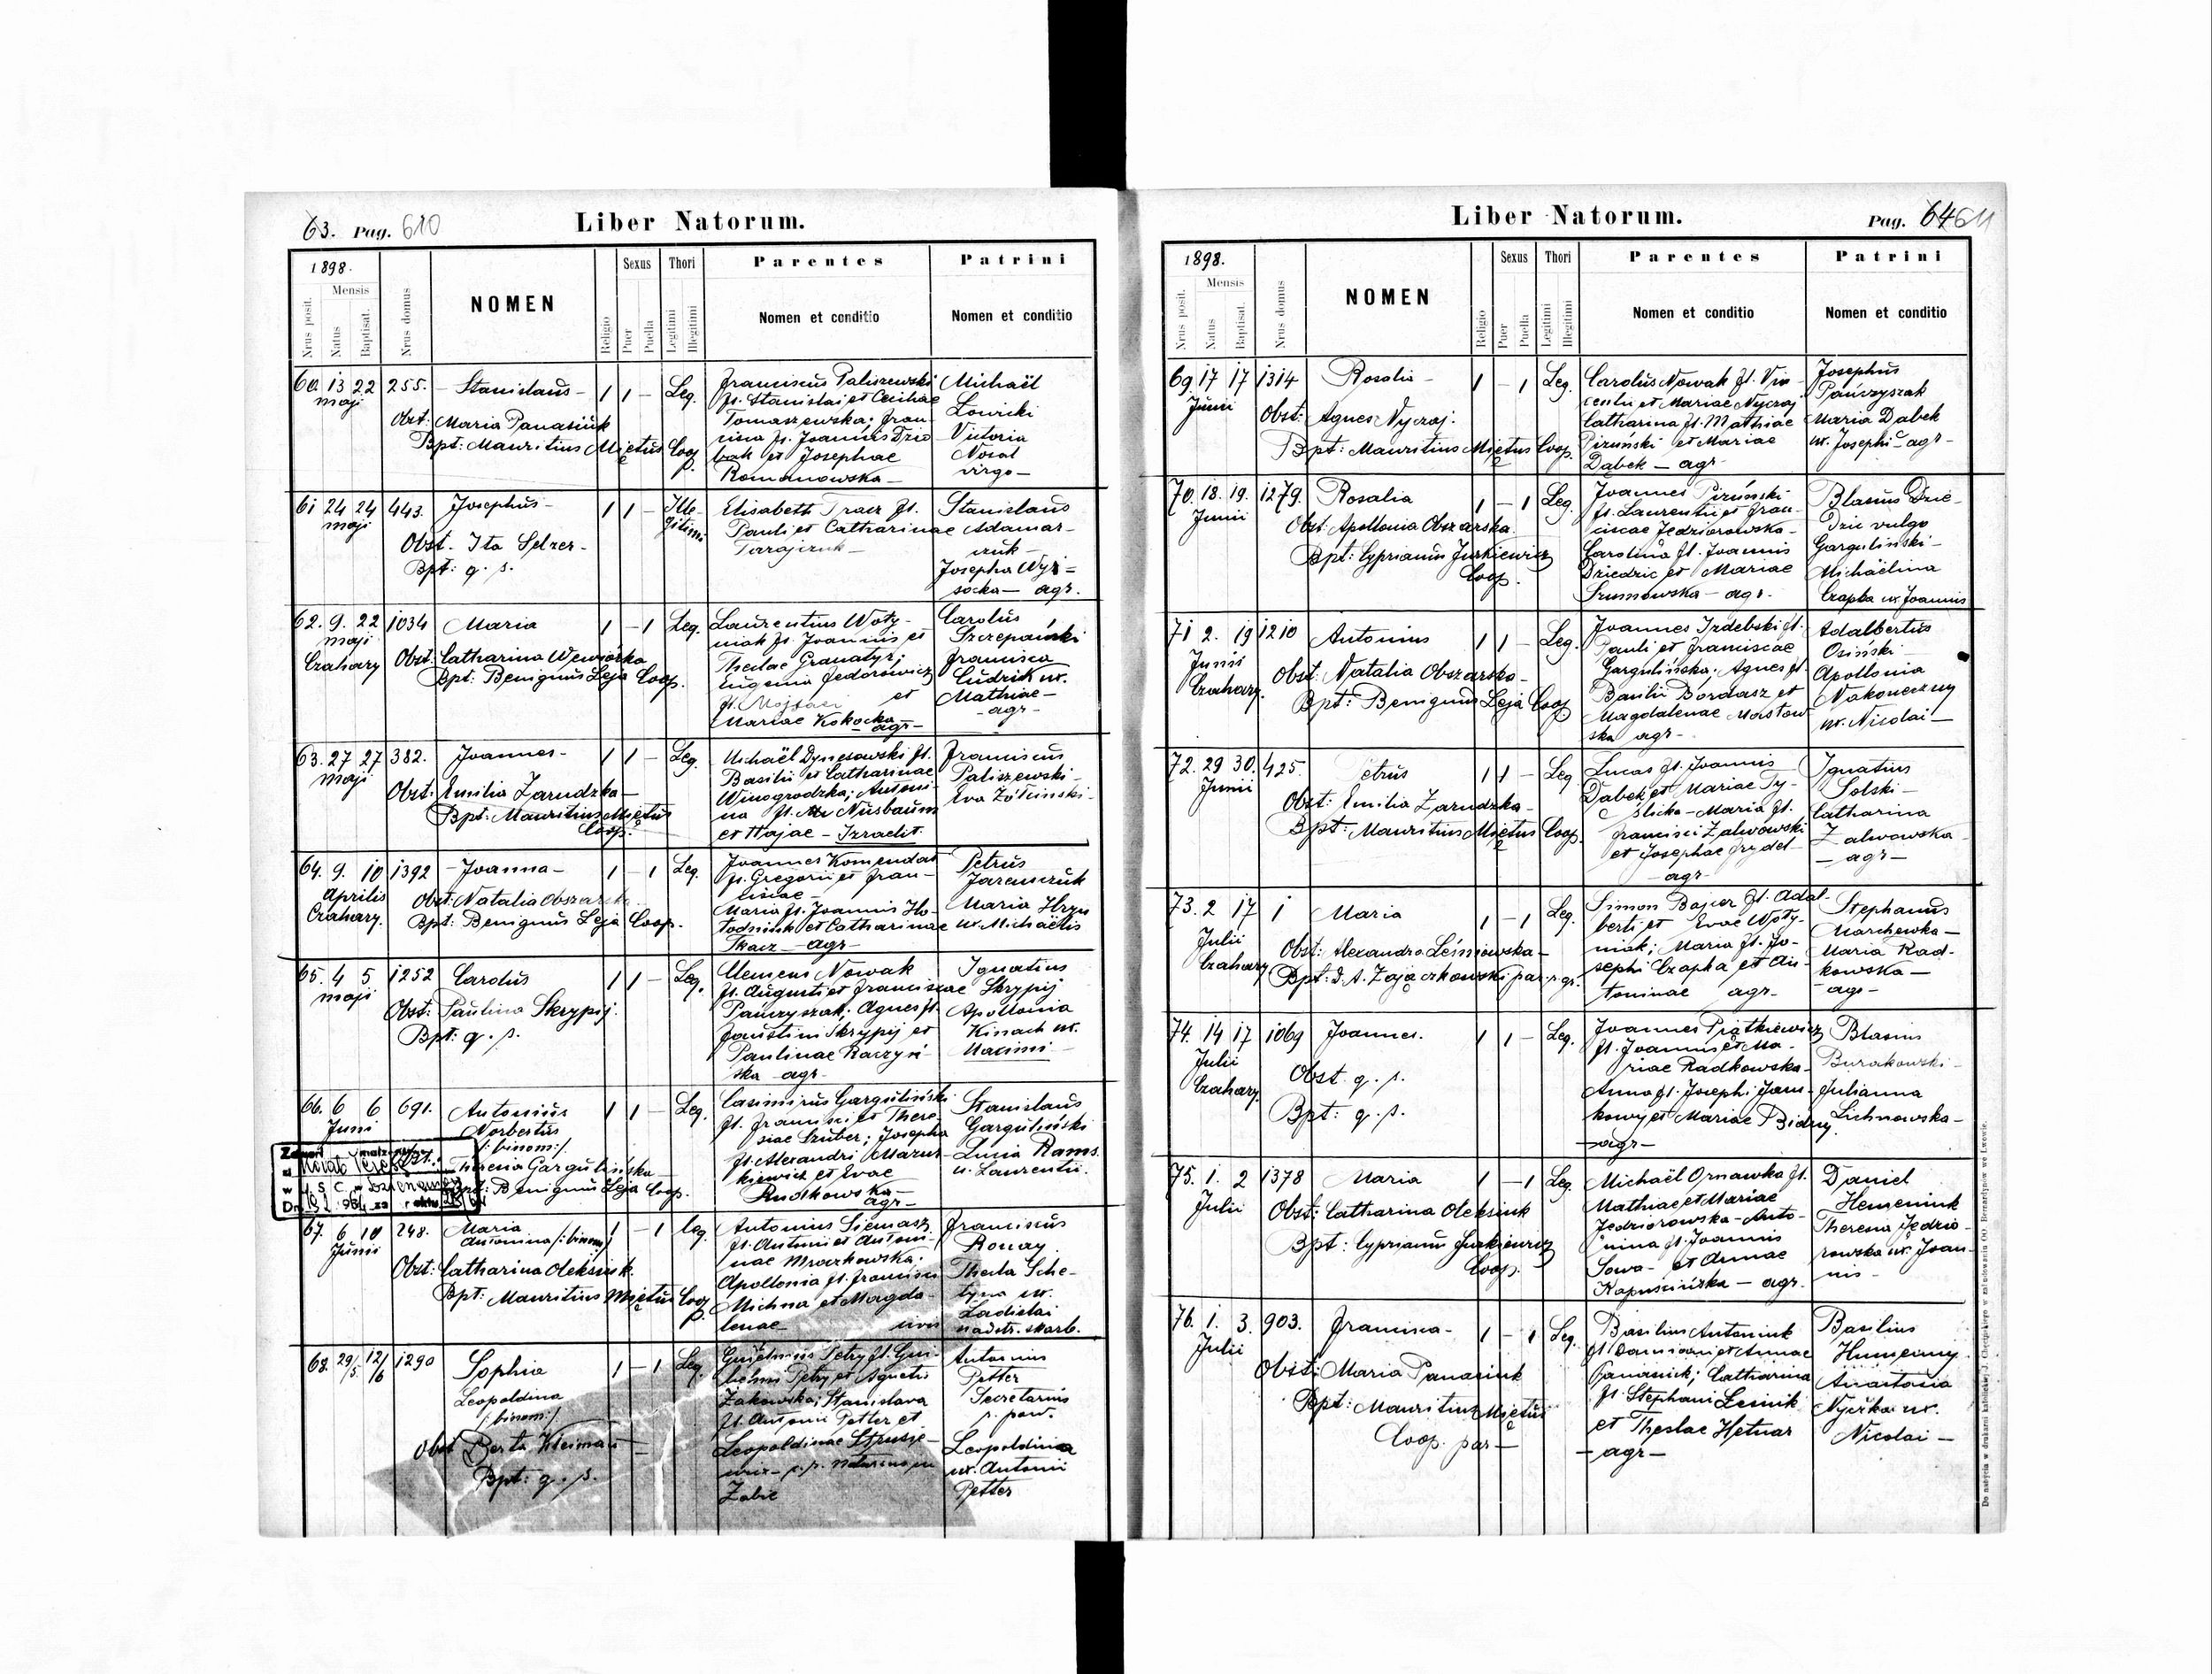 63. Pag. 610
Liber Natorum.
1898.
Mensis
Nrus posit.
Natus
Baptisat.
Nrus domus
NOMEN
Religio
Sexus
Puer
Puella
Thori
Legitimi
Illegitimi
Parentes
Nomen et conditio
Patrini
Nomen et conditio
60. 13 22 255.
maji
Stanislaus
1 1 – Leg.
Obst: Maria Panasiuk
Bpt: Mauritius Miętus Coop.
Franciscus Paliszewski
fl. Stanislai et Ceciliae
Tomaszewska; Fran-
cisca fl. Joannis Dzio-
bak et Josephae
Romanowska –
Michaël
Łowicki
Victoria
Nosal
virgo –
61 24 24 443.
maji
Josephus –
1 1 – Ille-
gitimi
Obst. Ita Selzer –
Bpt: q. s.
Elisabeth Tracz fl.
Pauli et Catharinae
Tarajczuk –
Stanislaus
Adamar-
czuk –
Josepha Wys-
socka – agr.
62. 9. 22 1034
maji
Czahary
Maria
1 – 1 Leg.
Obst: Catharina Wewiórka
Bpt: Benignus Leja Coop.
Laurentius Woty-
niak fl. Joannis et
Theclae Granatyr;
Eugenia Fedorowicz
fl. et
Mariae Kokocka
agr –
Carolus
Szczepański
Francisca
Cudzik ux.
Mathiae –
– agr –
63. 27 27 382.
maji
Joannes –
1 1 – Leg.
Obst: Emilia Zarudzka –
Bpt: Mauritius Miętus
Coop.
Michaël Dynesowski fl.
Basilii et Catharinae
Winogrodzka; Antoni-
na fl. Nusbaum
et Hajae – Izraelit.
Franciscus
Paliszewski –
Eva Żółcinski –
64. 9. 10 1392
Aprilis
Czahary.
Joanna –
1 – 1 Leg.
Obst: Natalia Obszarska
Bpt: Benignus Leja Coop.
Joannes Komendat
fl. Gregorii et Fran-
ciscae –
Maria fl. Joannis Ho-
łodniuk et Catharinae
Tkacz – agr –
Petrus
Jaremczuk
Maria Hryn
ux. Michaëlis
65. 4 5 1252
maji
Carolus
1 1 – Leg.
Obst: Paulina Skrypij.
Bpt: q. s.
Clemens Nowak
fl. Augusti et Franciscae
Pańczyszak; Agnes fl.
Faustini Skrypij et
Paulinae Raczyń-
ska agr –
Ignatius
Skrypij
Apollonia
Kinach ux.
Maximi –
66. 6 6 691.
Junii
Antonius
Norbertus
/:binom:/
1 1 – Leg.
Obst:
Theresia Gargulińska –
Bpt: Benignus Leja Coop.
Casimirus Garguliński
fl. Francisci et There-
siae Szuber; Josepha
fl. Alexandri Mazur-
kiewicz et Evae
Rudkowska –
agr –
Stanislaus
Garguliński
Lucia Rams
u. Laurentii.
67. 6 10 248.
Junii
Maria
Antonina /:binom:/
1 – 1 leg.
Obst: Catharina Oleksiuk.
Bpt: Mauritius Miętus Coop.
Antonius Siemasz
fl. Antonii et Antoni-
nae Mroczkowska.
Apollonia fl. Francisci
Michna et Magda-
lenae civis
Franciscus
Rouay
Thecla Sche-
tyna ux.
Ladislai
nadstr. skarb.
68. 29/5. 12/6 1290
Sophia
Leopoldina
/:binom:/
1 – 1 Leg.
Obst Berta Kleiman
Bpt: q. s.
Guilelmus Petry fl. Gui-
lelmi Petry et Agnetis
Żakowska; Stanislava
fl. Antonii Petter et
Leopoldinae Strusie-
wicz – p. p. notarius in
Żabie
Antonius
Petter
Secretarius
r. pow.
Leopoldina
ux. Antonii
Petter
Liber Natorum.
Pag. 64 611
1898.
Mensis
Nrus posit.
Natus
Baptisat.
Nrus domus
NOMEN
Religio
Sexus
Puer
Puella
Thori
Legitimi
Illegitimi
Parentes
Nomen et conditio
Patrini
Nomen et conditio
69 17 17 1314
Junii
Rosalia –
1 – 1 Leg.
Obst: Agnes Nyczaj.
Bpt: Mauritius Miętus Coop.
Carolus Nowak fl. Vin-
centii et Mariae Nyczaj
Catharina fl. Mathiae
Piruński et Mariae
Dąbek – agr
Josephus
Pańczyszak
Maria Dąbek
ux. Josephi – agr –
70. 18. 19. 1279.
Junii
Rosalia
1 – 1 Leg.
Obst: Apollonia Obszarska.
Bpt: Cyprianus Jurkiewicz
Coop.
Joannes Piruński
fl. Laurentii et Fran-
ciscae Jedziorowska –
Carolina fl. Joannis
Dziedzic et Mariae
Szumowska – agr.
Blasius Dzie-
dzic vulgo
Garguliński –
Michaëlina
Czapla ux Joannis
71 2. 19 1210
Junii
Czahary.
Antonius
1 1 – Leg.
Obst: Natalia Obszarska –
Bpt: Benignus Leja Coop
Joannes Izdebski fl.
Pauli et Franciscae
Gargulińska; Agnes fl.
Basilii Bordasz et
Magdalenae Masłow-
ska agr –
Adalbertus
Osiński
Apollonia
Nakoneczny
ux. Nicolai –
72. 29 30. 425.
Junii
Petrus
1 1 – Leg
Obst: Emilia Zarudzka –
Bpt: Mauritius Miętus Coop
Lucas fl. Joannis
Dąbek et Mariae Ty-
ślicka – Maria fl.
Francisci Zalwowski
et Josephae Frydel –
– agr –
Ignatius
Solski –
Catharina
Zalwowska
– agr –
73. 2 17 1
Julii
Czahary
Maria
1 – 1 Leg.
Obst: Alexandra Leśniowska –
Bpt: I. A. Zajączkowski par. r. gr.
Simon Bajcer fl. Adal-
berti et Evae Woty-
niak; Maria fl. Jo-
sephi Czapla et An-
toninae agr –
Stephanus
Marchewka –
Maria Rad-
kowska –
– agr –
74. 14 17 1069
Julii
Czahary
Joannes.
1 1 – Leg.
Obst. q. s.
Bpt: q. s.
Joannes Piątkiewicz
fl. Joannis et Ma-
riae Radkowska –
Anna fl. Josephi Jani-
kowy et Mariae Bidny.
– agr –
Blasius
Burakowski –
Julianna
Lichnowska –
75. 1. 2 1378
Julii
Maria
1 – 1 Leg.
Obst: Catharina Oleksiuk
Bpt: Cyprianus Jurkiewicz
Coop.
Michaël Ornawka fl.
Mathiae et Mariae
Jedziorowska – Anto-
nina fl. Joannis
Sowa – et Annae
Kapuścińska – agr.
Daniel
Hemeniuk
Theresia Jedzio-
rowska ux. Joan-
nis –
76. 1. 3. 903.
Julii
Francisca –
1 – 1 Leg.
Obst: Maria Panasiuk
Bpt: Mauritius Miętus
Coop. par –
Basilius Antoniuk
fl. Damiani et Annae
Panasiuk; Catharina
fl. Stephani Lesiuk
et Theclae Hetnar
– agr –
Basilius
Humenny
Anastasia
Nyczka ux.
Nicolai –